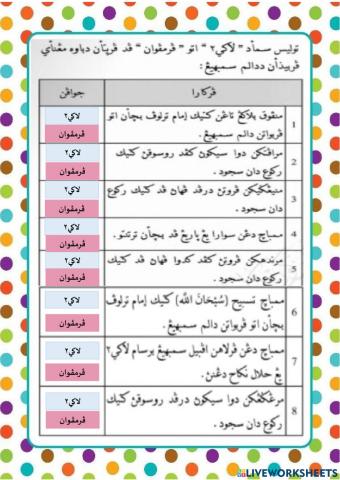 توليس سماد " لاكي٢ " اتو " ڤرمڤوان " ڤد ڤرڽتأن دباوه مڠنأي
ڤربيذأن ددالم سمبهيڠ :
ڤركارا
جواڤن
1
منڤوق بلاكڠ تاڠن كتيك إمام ترلوڤ بچأن اتو
ڤربواتن دالم سمبهيڠ .
لاكي٢
ڤرمڤوان
2
مراڤتكن دوا سيكون كڤد روسوقڽ كتيك
ركوع دان سجود .
لاكي٢
ڤرمڤوان
3
منيڠݢيكن ڤروتڽ درڤد ڤهاڽ ڤد كتيك ركوع
دان سجود .
لاكي٢
ڤرمڤوان
4
ممباچ دڠن سوارا يڠ ڽاريڠ ڤد بچأن ترتنتو .
لاكي٢
ڤرمڤوان
5
مرندهكن ڤروتڽ كڤد كدوا ڤهاڽ ڤد كتيك
ركوع دان سجود .
لاكي٢
ڤرمڤوان
6
ممباچ تسبيح (سُبْحَانَ اللّٰه) كتيك إمام ترلوڤ
بچأن اتو ڤربواتن دالم سمبهيڠ .
لاكي٢
ڤرمڤوان
7
ممباچ دڠن ڤرلاهن اڤبيل سمبهيڠ برسام لاكي٢
يڠ حلال نكاح دڠنڽ .
لاكي٢
ڤرمڤوان
8
مرڠݢڠكن دوا سيكون درڤد روسوقڽ كتيك
ركوع دان سجود .
لاكي٢
ڤرمڤوان
LIVEWORKSHEETS